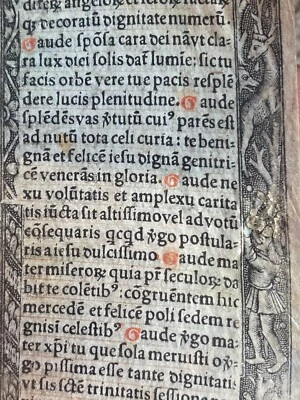 diferꝫ angeloꝝ et ceteꝝ sanctaꝝ
q̃ decoratũ dignitate numerũ.
Gaude spõsa cara dei nã vt cla
ra lux diei solis dat̃ lumie: sic tu
facis orbẽ vere tue pacis resplẽ
dere lucis plenitudine. Gaude
splẽdẽs vas ꝟtutũ cuiꝰ parẽs est
ad nutũ tota celi curia: te beni⸗
gnã et felicẽ iesu dignã genitri⸗
cẽ venerãs in gloria. Gaude ne
xu volũtatis et amplexu carita
tis iũcta sit altissimo vel ad votũ
cõsequaris qcqd ꝟgo postula⸗
ris a iesu dulcissimo Gaude ma
ter miseroꝝ quia pr̃ seculoꝝ da
bit te colẽtibꝰ: cõgruẽtem hic
mercedẽ et felicẽ poli sedem re
gnisi celestibꝰ Gaude ꝟgo ma⸗
ter xp̃i tu que sola meruisti oꝟ
go pissima esse tante dignitatis
vt sis sctẽ trinitatis sessione